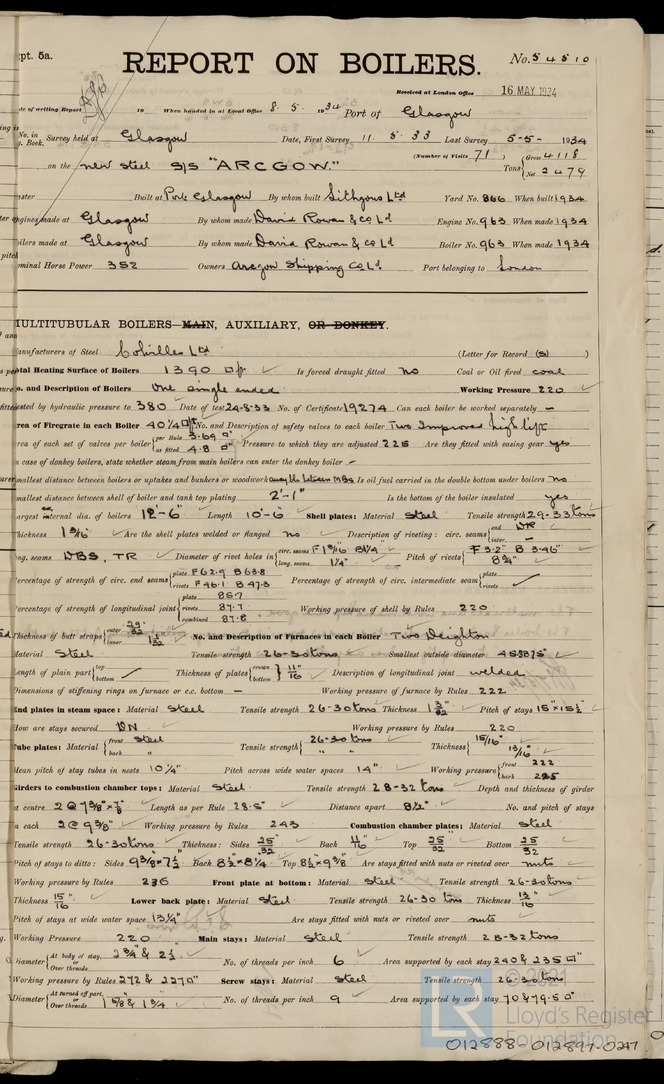 Rpt. 5a.
REPORT ON BOILERS.
No. 54510
Received at London Office 16 MAY 1934
Date of writing Report 19 When handed in at Local Office 8. 5. 1934 Port of Glasgow
No. in Survey held at Glasgow Date, First Survey 11. 5. 33 Last Survey 5-5- 1934
Book.
(Number of Visits 71)
on the new steel S/S "ARCGOW." Tons Gross 4118 Net 2479
Master Built at Port Glasgow By whom built Lithgows Ltd Yard No. 866 When built 1934
Engines made at Glasgow By whom made David Rowan & Co Ld Engine No. 963 When made 1934
Boilers made at Glasgow By whom made David Rowan & Co Ld Boiler No. 963 When made 1934
Nominal Horse Power 352 Owners Arcgow Shipping Co Ld Port belonging to London
MULTITUBULAR BOILERS MAIN, AUXILIARY, OR DONKEY.
Manufacturers of Steel Colvilles Ltd (Letter for Record (S) )
Total Heating Surface of Boilers 1390 Is forced draught fitted No Coal or Oil fired coal
No. and Description of Boilers One single ended Working Pressure 220
Tested by hydraulic pressure to 380 Date of test 24-8-33 No. of Certificate 19274 Can each boiler be worked separately –
Area of Firegrate in each Boiler 40 1/4 No. and Description of safety valves to each boiler Two Improved high lift
Area of each set of valves per boiler per Rule 3.69 as fitted 4.8 Pressure to which they are adjusted 225 Are they fitted with easing gear yes
In case of donkey boilers, state whether steam from main boilers can enter the donkey boiler –
Smallest distance between boilers or uptakes and bunkers or woodwork Is oil fuel carried in the double bottom under boilers No
Smallest distance between shell of boiler and tank top plating 2'-1" Is the bottom of the boiler insulated yes
Largest internal dia. of boilers 12'-6" Length 10'-6" Shell plates: Material Steel Tensile strength 29-33 tons
Thickness 1 3/16" Are the shell plates welded or flanged No Description of riveting: circ. seams end DR inter. –
long. seams DBS, TR Diameter of rivet holes in circ. seams F 1 5/16" B 1 1/4 long. seams 1 1/4" Pitch of rivets F 3.2" B 3.46" 8 3/4"
Percentage of strength of circ. end seams plate F 62.9 B 63.8 rivets F 45.1 B 47.3 Percentage of strength of circ. intermediate seam plate rivets
Percentage of strength of longitudinal joint plate 85.7 rivets 87.7 combined 87.8 Working pressure of shell by Rules 220
Thickness of butt straps outer 29/32 inner 1 1/32 No. and Description of Furnaces in each Boiler Two Deighton
Material Steel Tensile strength 26-30 tons Smallest outside diameter 45.5875"
Length of plain part top bottom Thickness of plates crown bottom 11/16" Description of longitudinal joint welded
Dimensions of stiffening rings on furnace or c.c. bottom – Working pressure of furnace by Rules 222
End plates in steam space: Material Steel Tensile strength 26-30 tons Thickness 1 3/32 Pitch of stays 15" x 15 1/2"
How are stays secured DN Working pressure by Rules 220
Tube plates: Material front Steel back " Tensile strength 26-30 tons " " Thickness 15/16" 13/16"
Mean pitch of stay tubes in nests 10 1/4" Pitch across wide water spaces 14" Working pressure front 222 back 225
Girders to combustion chamber tops: Material Steel Tensile strength 28-32 tons Depth and thickness of girder
at centre 2 @ 7 3/8" x 7/8" Length as per Rule 28.5" Distance apart 8 1/2" No. and pitch of stays
in each 2 @ 9 3/8" Working pressure by Rules 243 Combustion chamber plates: Material Steel
Tensile strength 26-30 tons Thickness: Sides 25/32 Back 11/16 Top 25/32 Bottom 25/32
Pitch of stays to ditto: Sides 9 3/8" x 7 1/2 Back 8 1/2" x 8 1/4 Top 8 1/2" x 9 3/8" Are stays fitted with nuts or riveted over nuts
Working pressure by Rules 236 Front plate at bottom: Material Steel Tensile strength 26-30 tons
Thickness 15/16" Lower back plate: Material Steel Tensile strength 26-30 tons Thickness 13/16"
Pitch of stays at wide water space 13 3/4" Are stays fitted with nuts or riveted over nuts
Working Pressure 220 Main stays: Material Steel Tensile strength 28-32 tons
Diameter At body of stay, Over threads 2 3/4 & 2 1/2 No. of threads per inch 6 Area supported by each stay 240 & 235
Working pressure by Rules 272 & 227 Screw stays: Material Steel Tensile strength 26-30 tons
Diameter At turned off part, Over threads 1 5/8 & 1 3/4 No. of threads per inch 9 Area supported by each stay 70 & 79.5
© 2021
LR Lloyd's Register
Foundation
012888-012897-0247